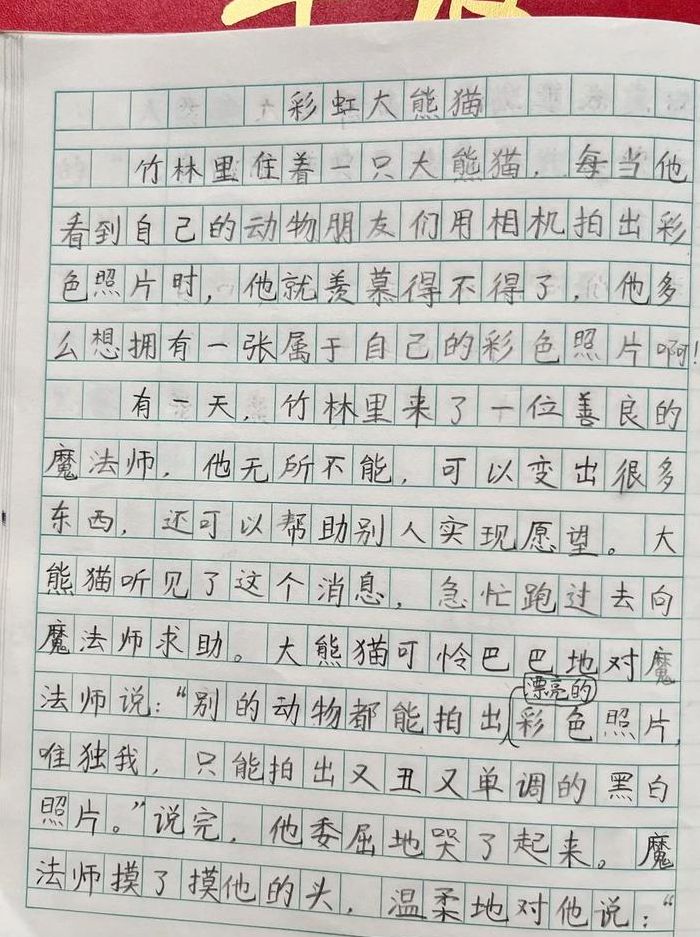 彩虹大熊猫
竹林里住着一只大熊猫，每当他
看到自己的动物朋友们用相机拍出彩
色照片时，他就羡慕得不得了，他多
么想拥有一张属于自己的彩色照片啊！
有一天，竹林里来了一位善良的
魔法师，他无所不能，可以变出很多
东西，还可以帮助别人实现愿望。大
熊猫听见了这个消息，急忙跑过去向
魔法师求助。大熊猫可怜巴巴地对魔
法师说：“别的动物都能拍出漂亮的彩色照片，
唯独我，只能拍出又丑又单调的黑白
照片。”说完，他委屈地哭了起来。魔
法师摸了摸他的头，温柔地对他说：“